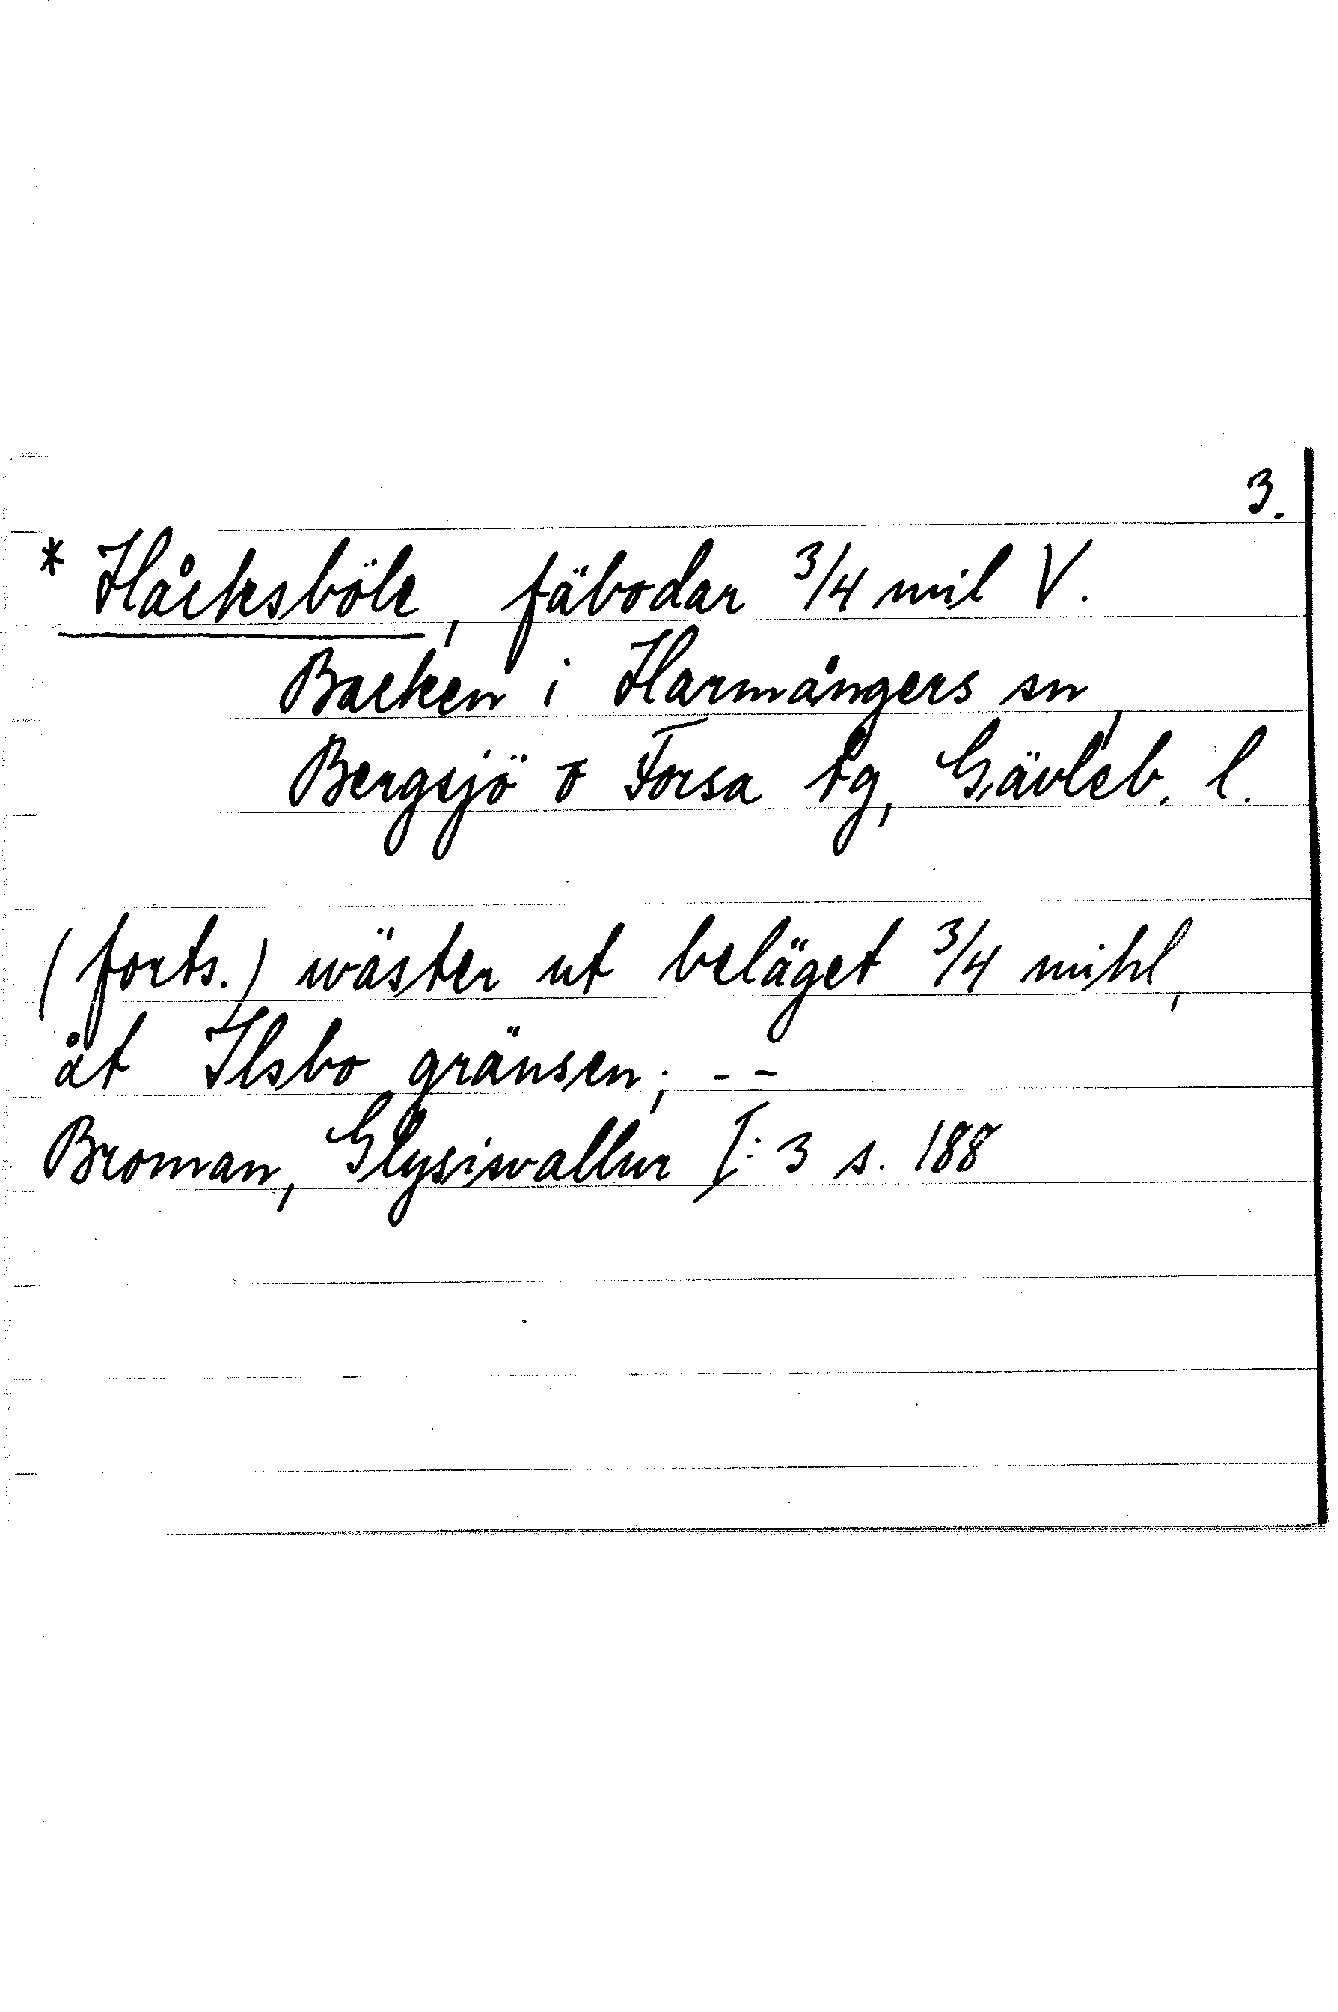 3.
* Håcksböle, fäbodar 3/4 mil V.
Backen i Harmångers sn,
Bergsjö o Forsa tg, Gävleb. l.
(forts.) wäster ut beläget 3/4 mihl,
åt Ilsbo gränsen; - -
Broman, Glysisvallur I:3 s. 188